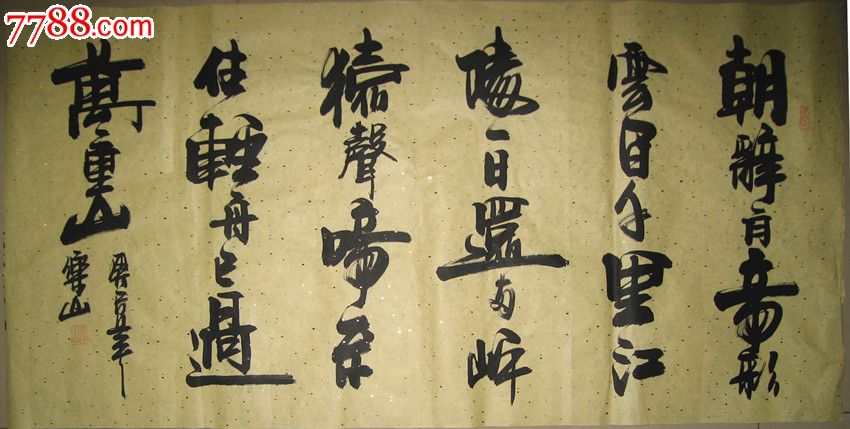 7788.com
中国收藏热线
朝辭白帝彩
雲間千里江
陵一日還兩岸
猿聲啼不
住輕舟已過
萬重山
庚寅年
樂山